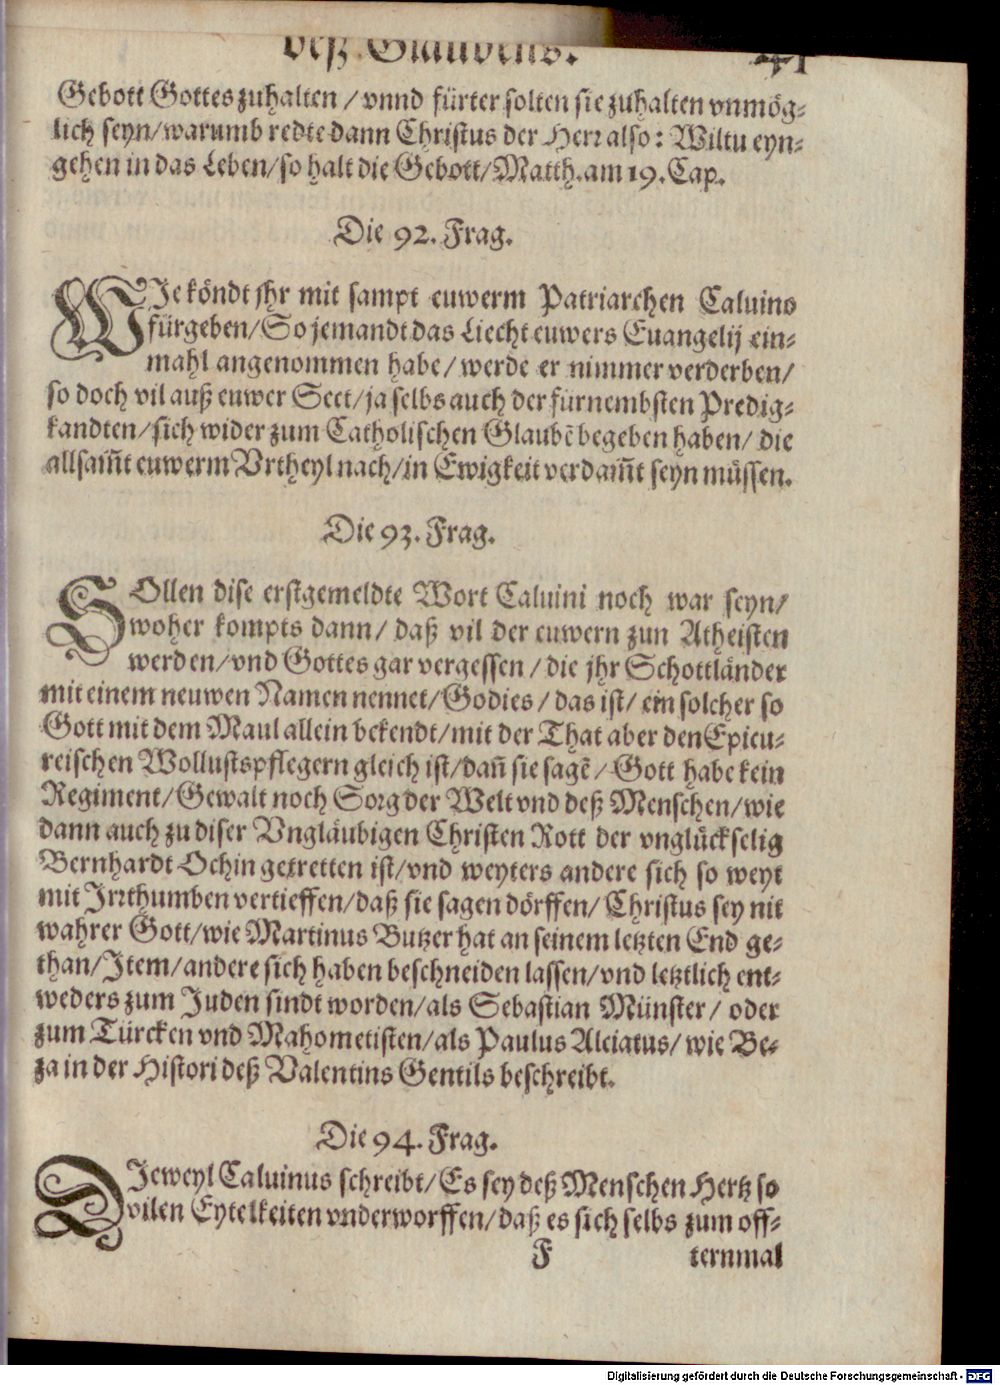 deß Glaubens. 41
Gebott Gottes zuhalten / vnnd fürter solten sie zuhalten vnmög-
lich seyn/warumb redte dann Christus der Herr also: Wiltu eyn-
gehen in das Leben/so halt die Gebott/Matth.am 19.Cap.
Die 92. Frag.
WJe köndt jhr mit sampt euwerm Patriarchen Caluino
fürgeben/So jemandt das Liecht euwers Euangelij ein-
mahl angenommen habe/ werde er nimmer verderben/
so doch vil auß euwer Sect/ja selbs auch der fürnembsten Predig-
kandten/sich wider zum Catholischen Glaubẽ begeben haben/ die
allsam̃t euwerm Vrtheyl nach/in Ewigkeit verdam̃t seyn müssen.
Die 93. Frag.
SOllen dise erstgemeldte Wort Caluini noch war seyn/
woher kompts dann/ daß vil der euwern zun Atheisten
werden/vnd Gottes gar vergessen /die jhr Schottländer
mit einem neuwen Namen nennet/Godies / das ist/ ein solcher so
Gott mit dem Maul allein bekendt/mit der That aber den Epicu-
reischen Wollustspflegern gleich ist/dañ sie sagẽ/ Gott habe kein
Regiment/Gewalt noch Sorg der Welt vnd deß Menschen/wie
dann auch zu diser Vngläubigen Christen Rott der vnglückselig
Bernhardt Ochin getretten ist/vnd weyters andere sich so weyt
mit Jrrthumben vertieffen/daß sie sagen dörffen/ Christus sey nit
wahrer Gott/wie Martinus Butzer hat an seinem letzten End ge-
than/Jtem/andere sich haben beschneiden lassen/vnd letztlich ent-
weders zum Juden sindt worden/als Sebastian Münster/ oder
zum Türcken vnd Mahometisten/als Paulus Alciatus/ wie Be-
za in der Histori deß Valentins Gentils beschreibt.
Die 94. Frag.
DJeweyl Caluinus schreibt/Es sey deß Menschen Hertz so
vilen Eytelkeiten vnderworffen/daß es sich selbs zum off-
F ternmal
Digitalisierung gefördert durch die Deutsche Forschungsgemeinschaft - DFG